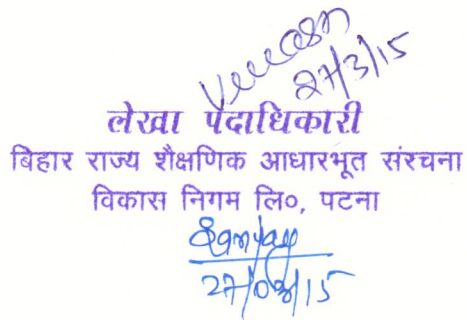 27/3/15
लेखा पदाधिकारी
बिहार राज्य शैक्षणिक आधारभूत संरचना
विकास निगम लि०, पटना
27/03/15